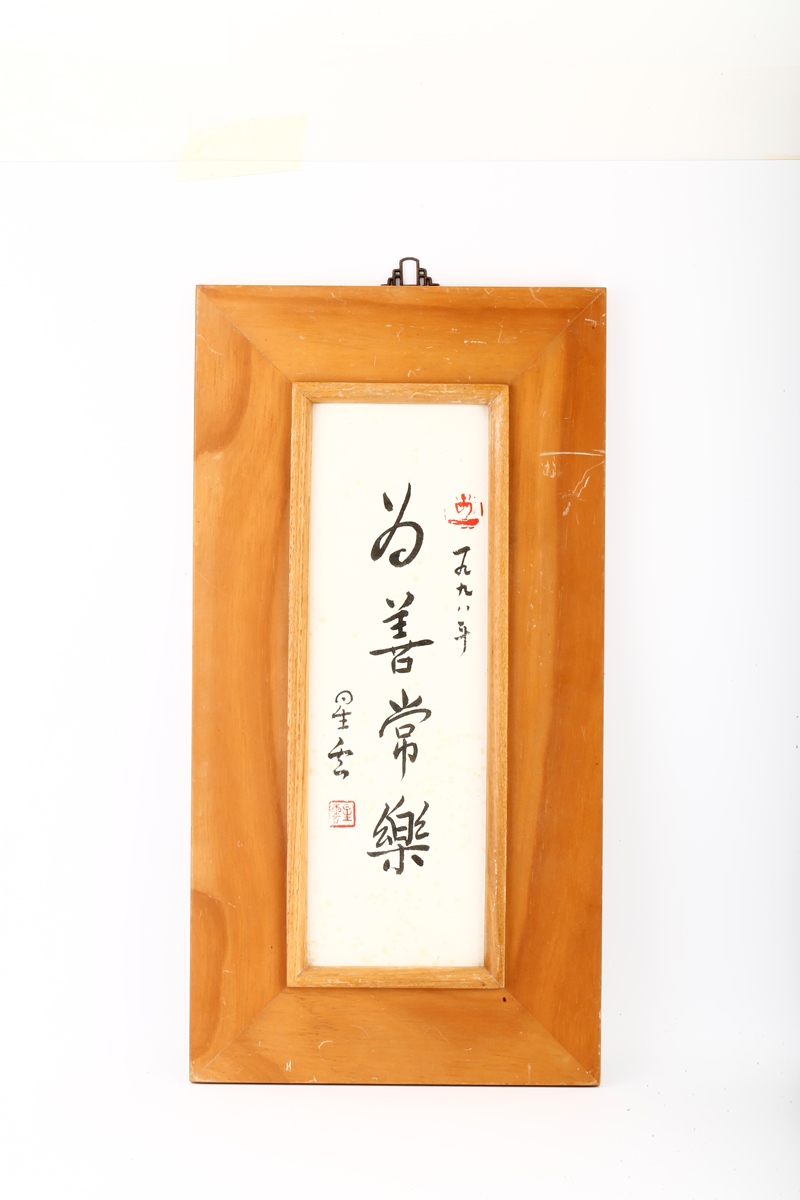 一九九八年
为善常樂
星雲
星雲